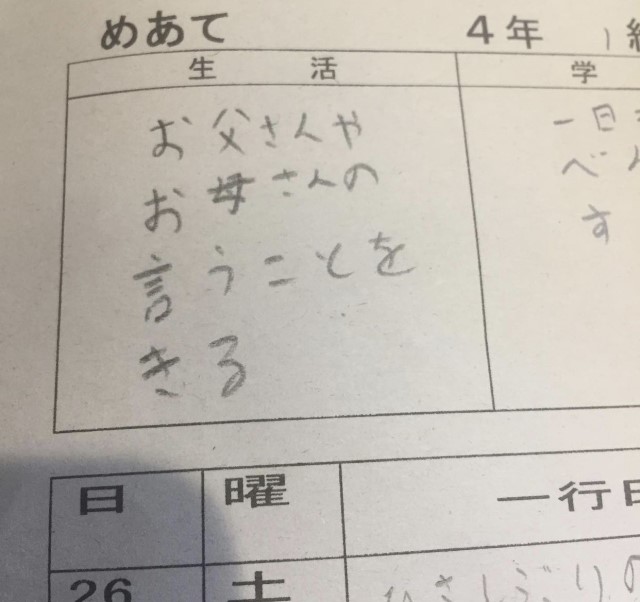 めあて 4年
生活 学
お父さんや
お母さんの
言うことを
きる
一日
べん
す
日 曜 一行日
26 土 ひさしぶりの